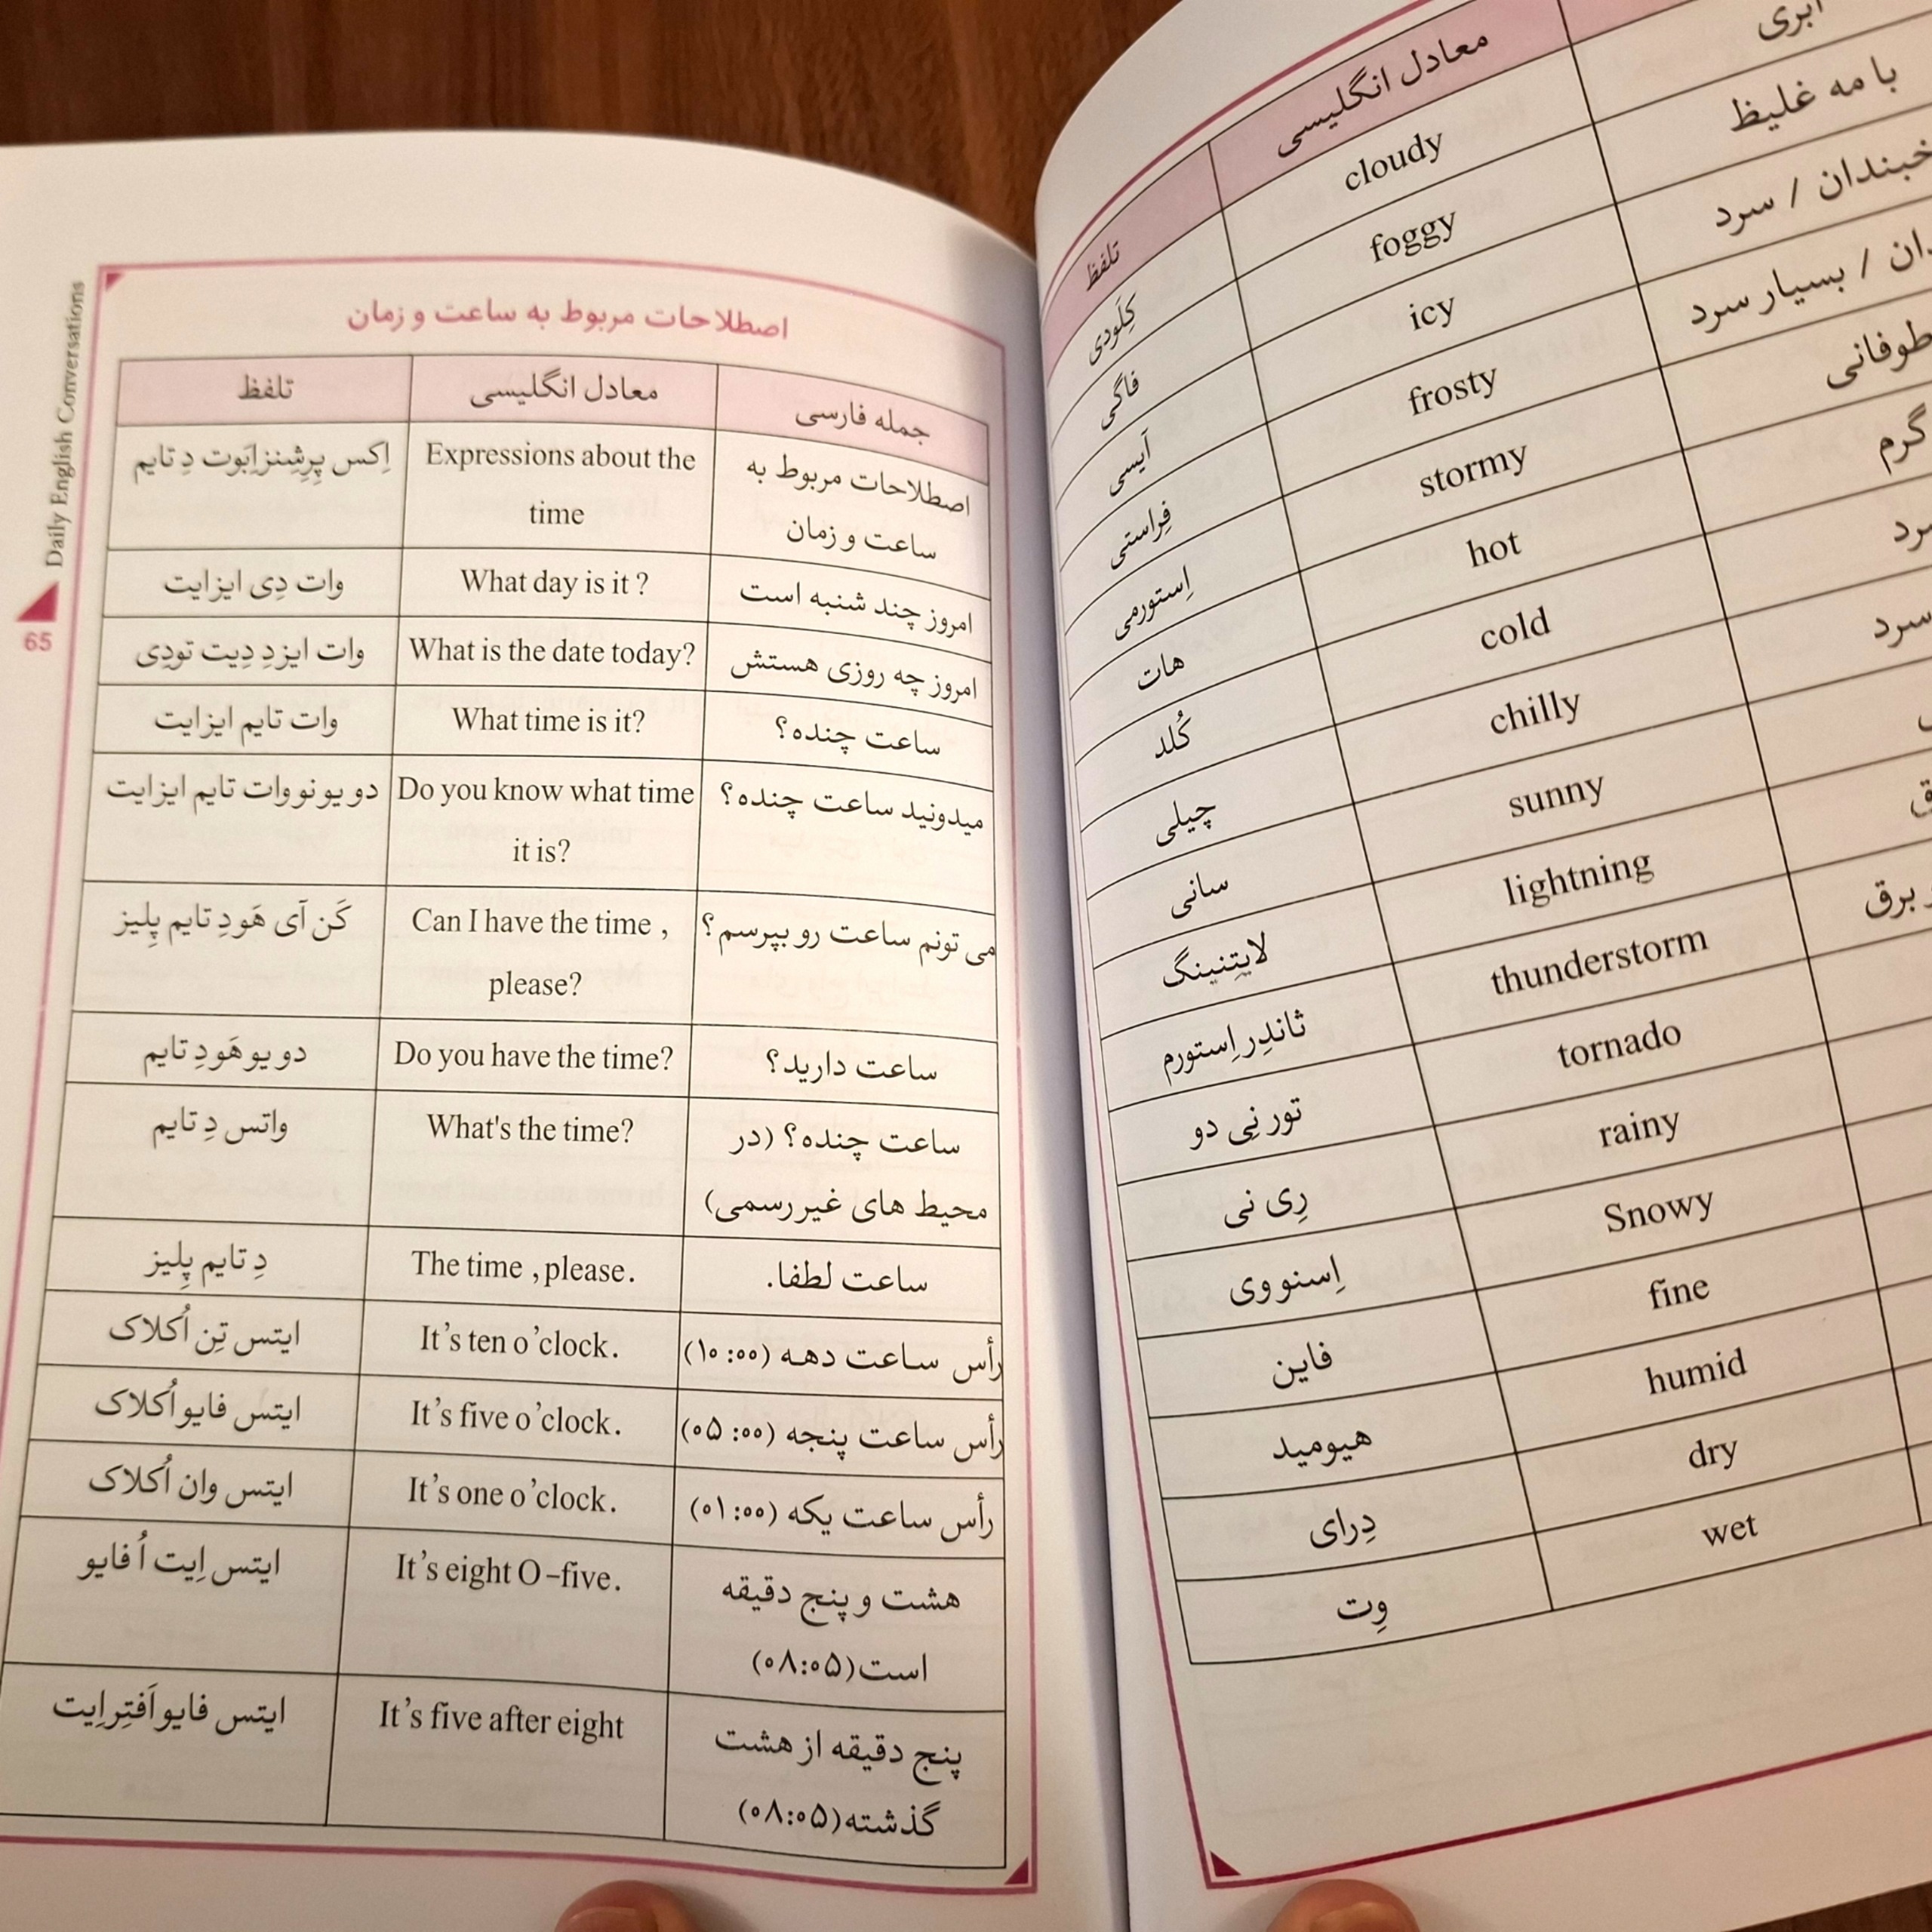 Daily English Conversations
65
اصطلاحات مربوط به ساعت و زمان
جمله فارسی معادل انگلیسی تلفظ
اصطلاحات مربوط به ساعت و زمان Expressions about the time اِکس پِرِشِنز اِبَوت دِ تایم
امروز چند شنبه است What day is it ? وات دِی ایز ایت
امروز چه روزی هستش What is the date today? وات ایز دِ دِیت تودِی
ساعت چنده؟ What time is it? وات تایم ایز ایت
میدونید ساعت چنده؟ Do you know what time it is? دو یو نو وات تایم ایز ایت
می تونم ساعت رو بپرسم؟ Can I have the time , please? کَن آی هَو دِ تایم پِلیز
ساعت دارید؟ Do you have the time? دو یو هَو دِ تایم
ساعت چنده؟ (در محیط های غیر رسمی) What's the time? واتس دِ تایم
ساعت لطفا. The time , please. دِ تایم پِلیز
رأس ساعت دهه (۱۰:۰۰) It's ten o'clock. ایتس تِن اُکلاک
رأس ساعت پنجه (۰۵:۰۰) It's five o'clock. ایتس فایو اُکلاک
رأس ساعت یکه (۰۱:۰۰) It's one o'clock. ایتس وان اُکلاک
هشت و پنج دقیقه است(۰۸:۰۵) It's eight O-five. ایتس اِیت اُ فایو
پنج دقیقه از هشت گذشته(۰۸:۰۵) It's five after eight ایتس فایو اَفتِر اِیت
معادل انگلیسی تلفظ
ابری cloudy کِلَودی
با مه غلیظ foggy فاگی
/ سرد icy آیسی
/ بسیار سرد frosty فِراستی
طوفانی stormy اِستورمی
گرم hot هات
cold کُلد
سرد chilly چیلی
sunny سانی
lightning لایتِنینگ
برق thunderstorm ثاندِر اِستورم
tornado تور نِی دو
rainy رِی نی
Snowy اِسنو وی
fine فاین
humid هیومید
dry دِرای
wet وِت